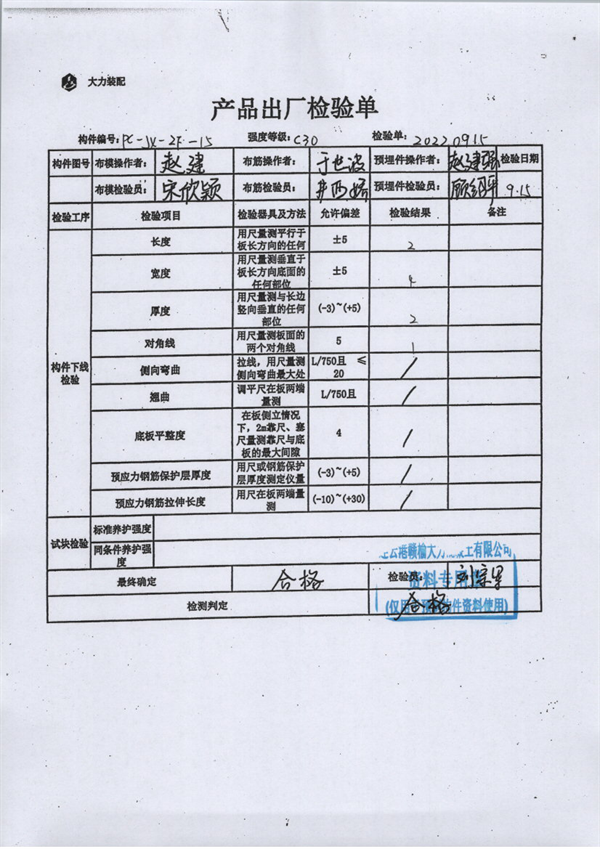 大力装配
产品出厂检验单
构件编号: PC-YX-2F-15 强度等级: C30 检验单: 20220915
构件图号 布模操作者: 赵建 布筋操作者: 于世波 预埋件操作者: 赵建强 检验日期
布模检验员: 宋欣颖 布筋检验员: 预埋件检验员: 9.15
检验工序 检验项目 检验器具及方法 允许偏差 检验结果 备注
构件下线检验
长度 用尺量测平行于板长方向的任何 ±5 2
宽度 用尺量测垂直于板长方向底面的任何部位 ±5 4
厚度 用尺量测与长边竖向垂直的任何部位 (-3)~(+5) 2
对角线 用尺量测板面的两个对角线 5 1
侧向弯曲 拉线，用尺量测侧向弯曲最大处 L/750且 ≤20 /
翘曲 调平尺在板两端量测 L/750且 /
底板平整度 在板侧立情况下，2m靠尺、塞尺量测靠尺与底板的最大间隙 4 /
预应力钢筋保护层厚度 用尺或钢筋保护层厚度测定仪量 (-3)~(+5) /
预应力钢筋拉伸长度 用尺在板两端量测 (-10)~(+30) /
试块检验 标准养护强度
同条件养护强度
最终确定 合格 检验员:
检测判定 合格
云港赣榆大力 工有限公司
资料专用
(仅用 件资料使用)